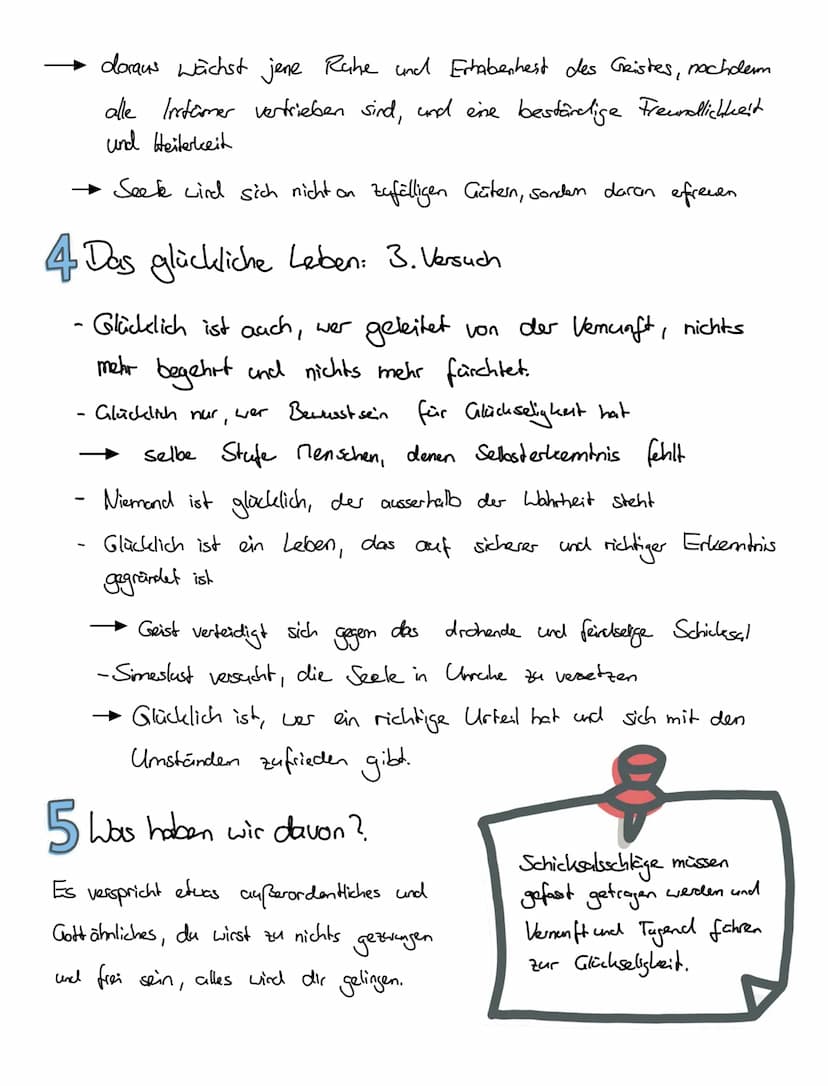 → daraus wächst jene Ruhe und Erhabenheit des Geistes, nachdem
alle Irrtümer vertrieben sind, und eine beständige Freundlichkeit
und Heiterkeit
→ Seele wird sich nicht an zufälligen Gütern, sondern daran efreuen
4 Das glückliche Leben: 3. Versuch
- Glücklich ist auch, wer geleitet von der Vernunft, nichts
mehr begehrt und nichts mehr fürchtet.
- Glücklich nur, wer Bewusstsein für Glückseligkeit hat
→ selbe Stufe Menschen, denen Selbsterkenntnis fehlt
- Niemand ist glücklich, der ausserhalb der Wahrheit steht
- Glücklich ist ein Leben, das auf sicherer und richtiger Erkenntnis
gegründet ist
→ Geist verteidigt sich gegen das drohende und feindselige Schicksal
- Sinneslust versucht, die Seele in Unruhe zu versetzen
→ Glücklich ist, wer ein richtige Urteil hat und sich mit den
Umständen zufrieden gibt.
5 Was haben wir davon?
Es verspricht etwas außerordentliches und
Gottähnliches, du wirst zu nichts gezwungen
und frei sein, alles wird dir gelingen.
Schicksalsschläge müssen
gefasst getragen werden und
Vernunft und Tugend führen
zur Glückseligkeit.